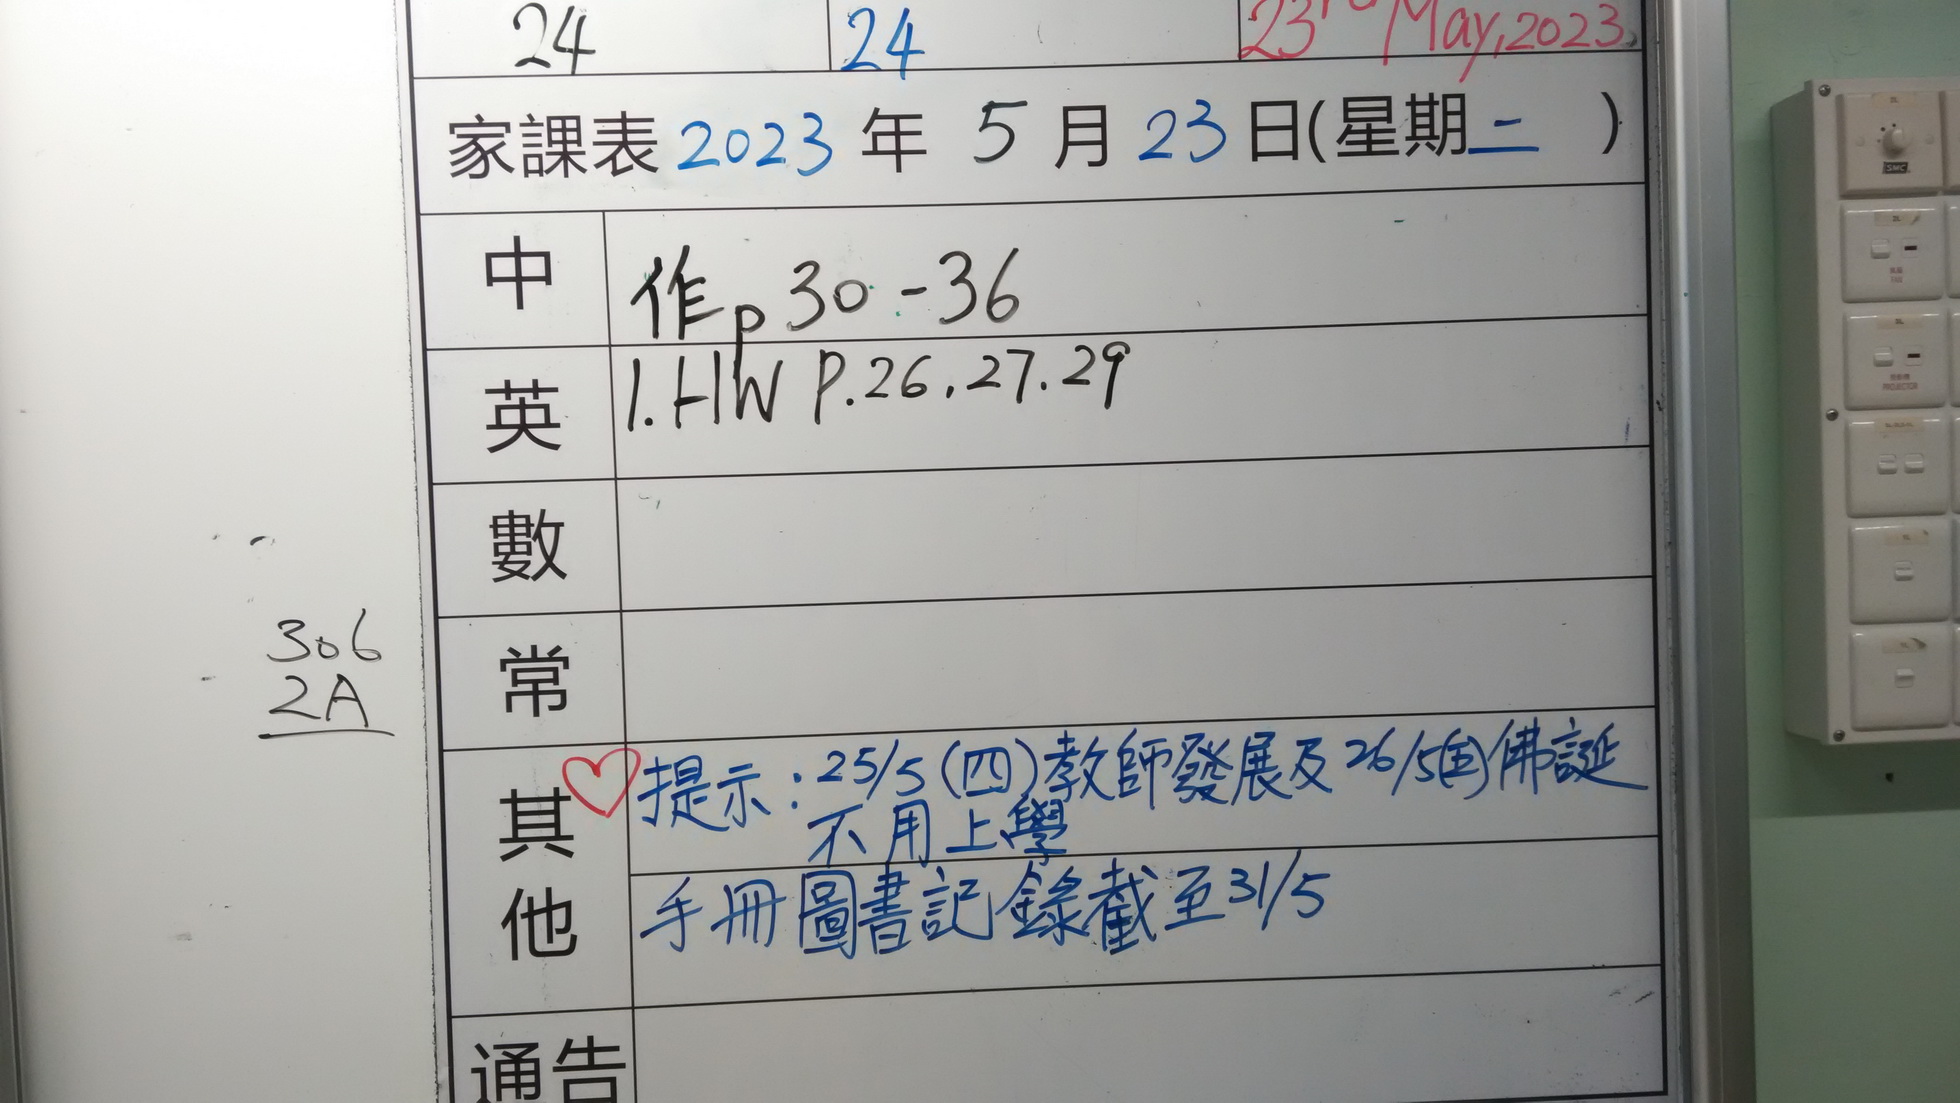 24 24 23rd May, 2023.
家課表 2023 年 5 月 23 日(星期二 )
中 作 p 30-36
英 1. HW P.26.27.29
數
常
306
2A
其他 提示：25/5 (四) 教師發展及 26/5(五) 佛誕
不用上學
手冊圖書記錄截至31/5
通告
PROJECTOR